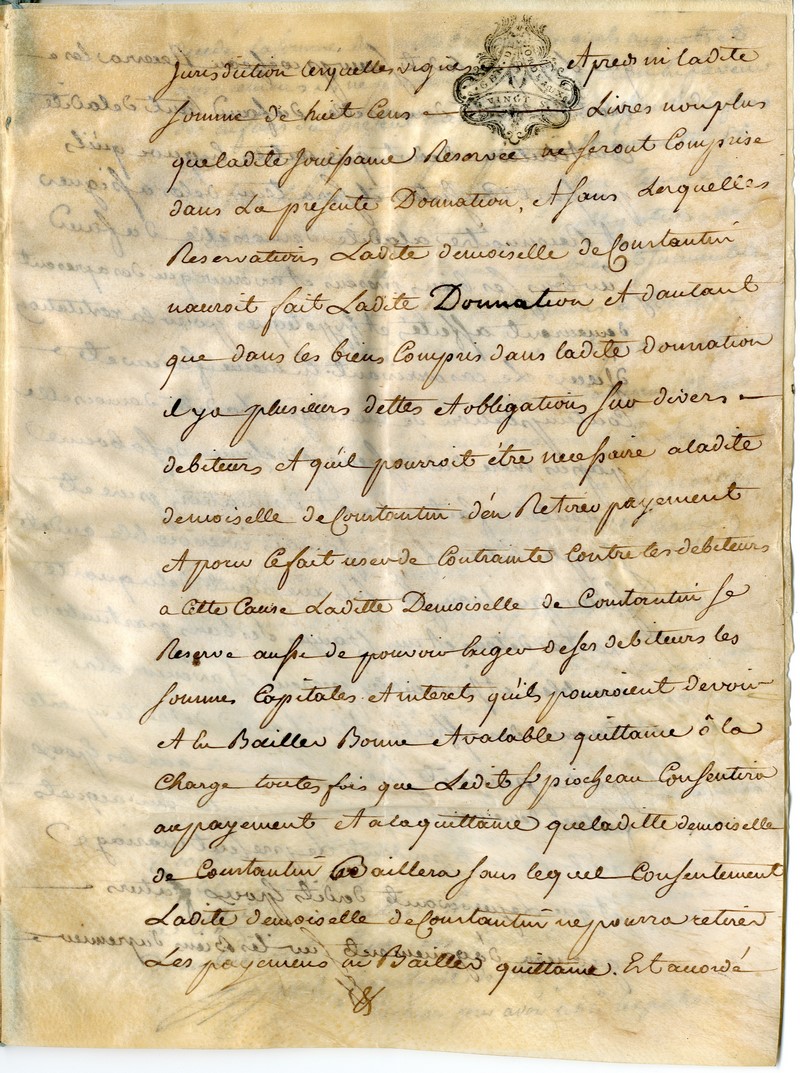 Jurisdiction lesquelles vignes Apres ni ladite
GEN. DE BORDEAUX
VINGT
somme de huit Cens Livres nonplus
queladite Jouissance Reservée ne seront Comprise
dans La presente Donnation, et sans Lesquelles
Reservations Ladite demoiselle de Constantin
nauroit fait Ladite Donnation Et dautant
que dans les biens Compris dans ladite donnation
il ya plusieurs dettes et obligations sur divers
debiteurs et qu'il pourroit être necessaire aladite
demoiselle de Constantin d'en Retirer payement
et pour Cefait user de Contrainte Contre les debiteurs
a Cette Cause Laditte Demoiselle de Constantin se
Reserve aussi de pouvoir Exiger deses debiteurs les
sommes Capitales et interets qu'ils pourroient devoir
et En Bailler Bonne et valable quittance ô la
Charge toutes fois que Ledit Sr piocheau Consentira
au payement et a la quittance queladitte demoiselle
de Constantin Baillera sans lequel Consentement
Ladite demoiselle de Constantin ne pourra retirer
Les payemens ni Bailler quittance. Est accordé